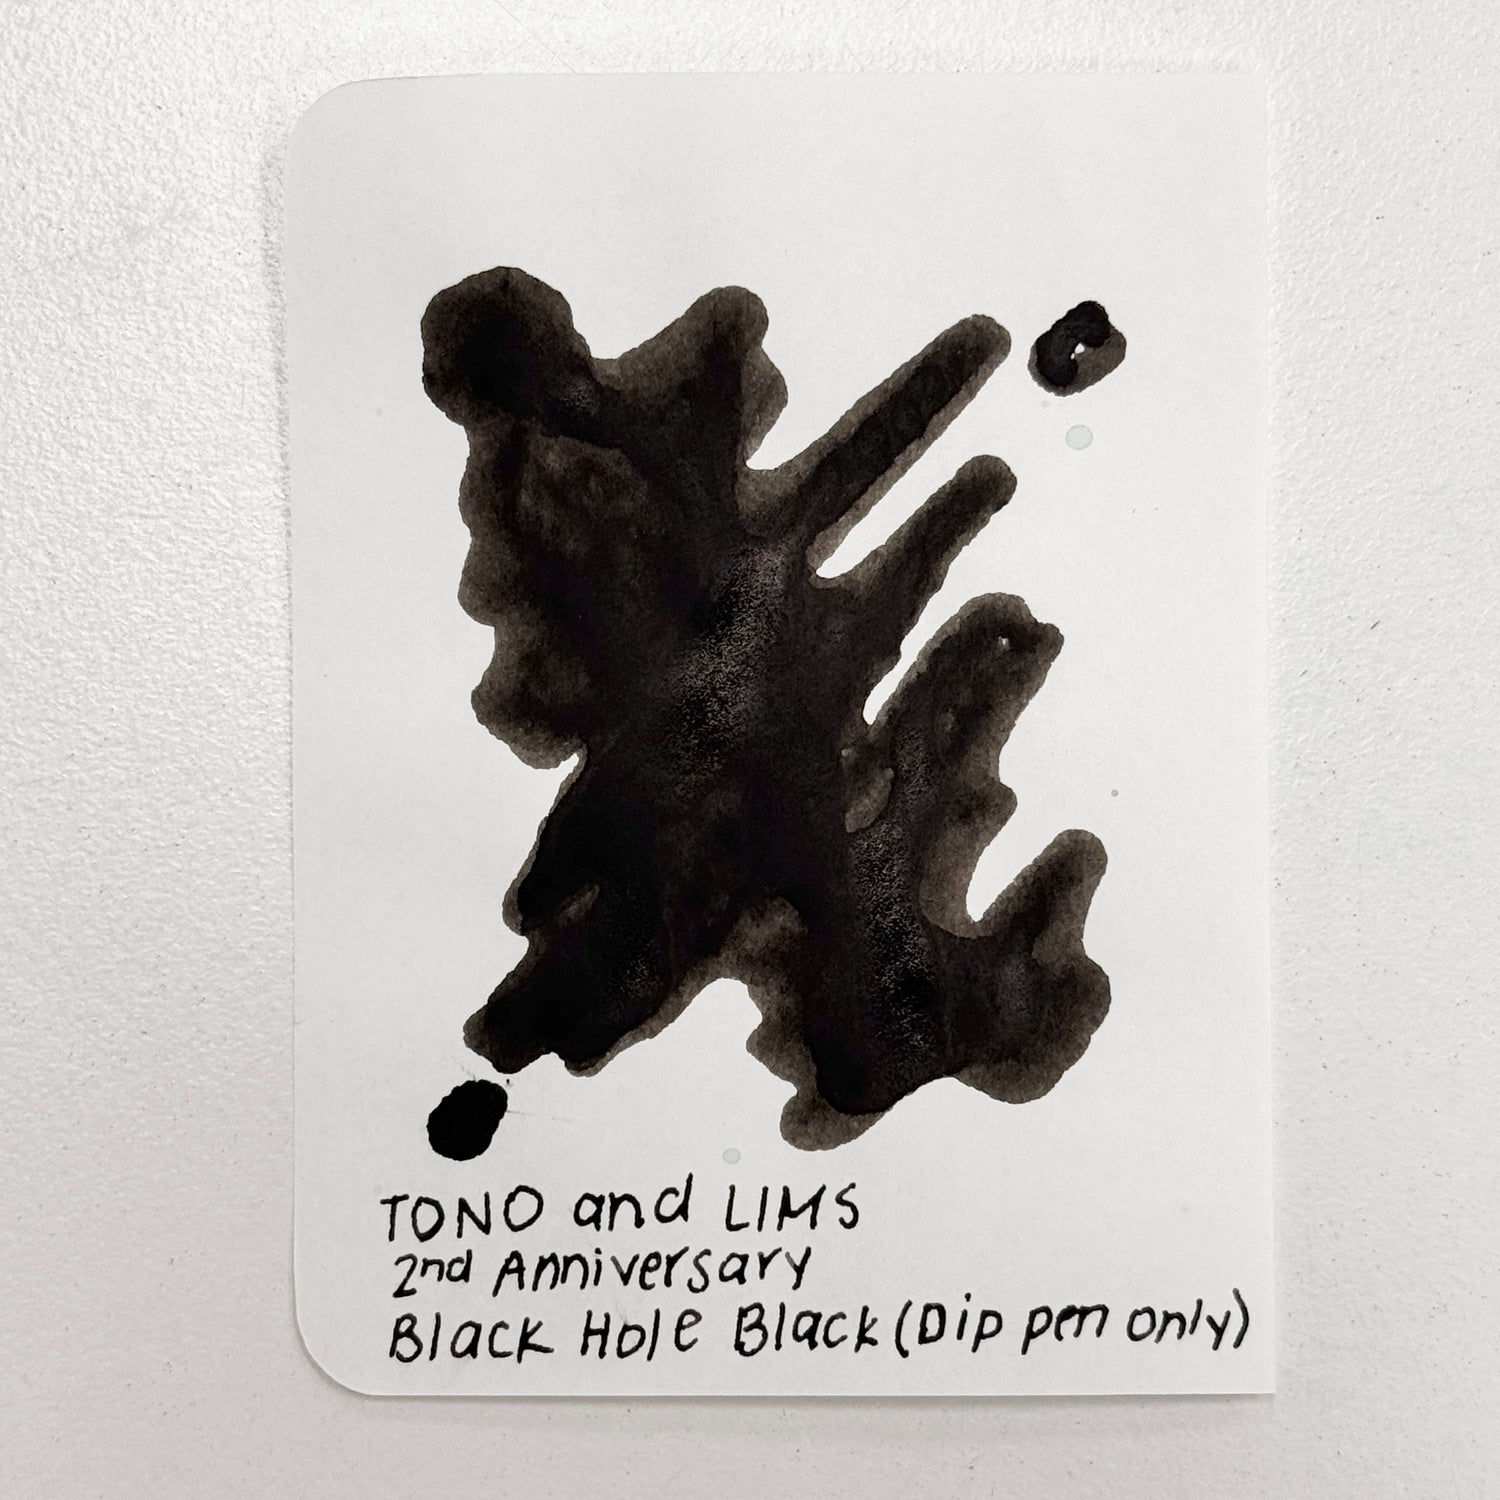 TONO and LIMS
2nd Anniversary
Black Hole Black (Dip pen only)